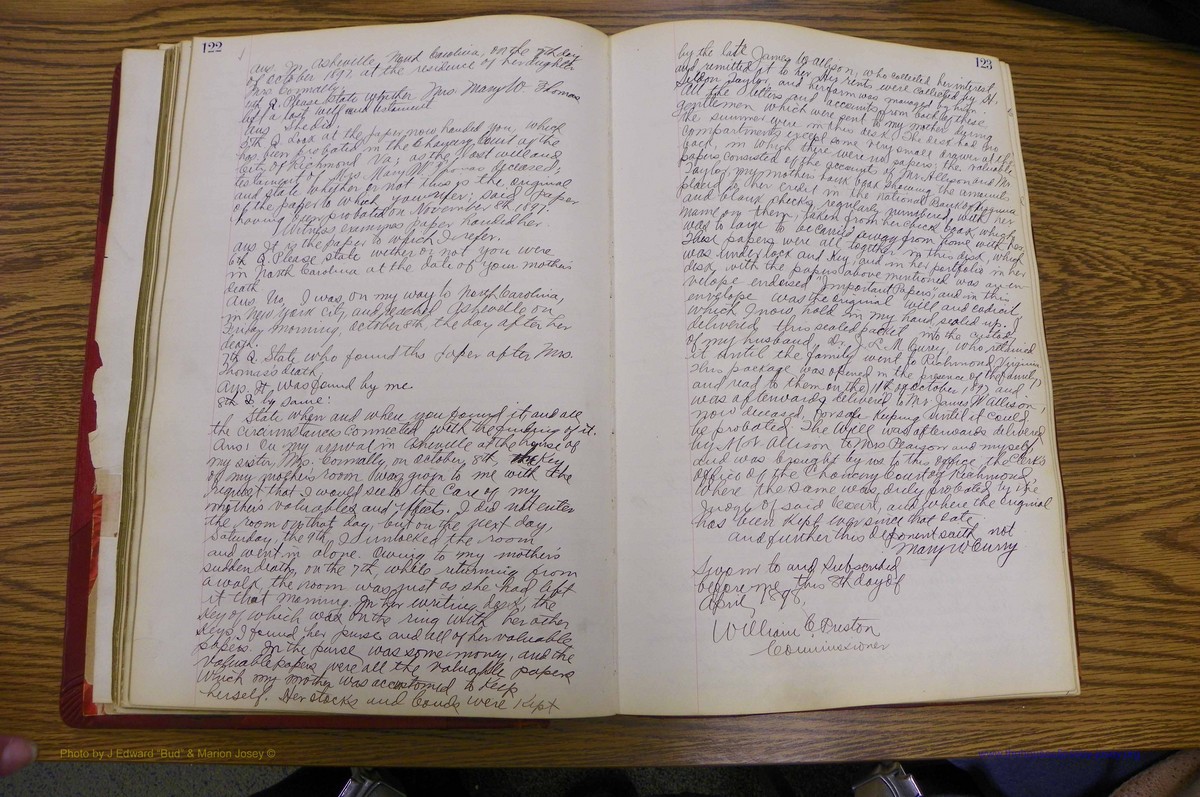 122
Ans. In Asheville, North Carolina, on the 7th day
of October 1897, at the residence of her daughter
Mrs Connally.
4th Q. Please State whether Mrs. Mary W. Thomas
left a last will and testament.
Ans She did.
5th Q. Look at the paper now handed you, which
has been probated in the Chancery Court of the
City of Richmond Va; as the last will and
testament of Mrs Mary W. Thomas deceased;
and state whether or not this is the original
of the paper to which you refer; said paper
having been probated on November 8th 1897.
Witness examines paper handed her.
Ans It is the paper to which I refer.
6th Q. Please state wether or not you were
in North Carolina at the date of your mother's
death
Ans, No, I was on my way to North Carolina,
in New York City, and reached Asheville on
Friday morning, October 8th, the day after her
death.
7th Q. State who found the paper after Mrs.
Thomas's death,
Ans. It was found by me
8th Q by same:
State when and where you found it and all
the circumstances connected with the finding of it.
Ans: On my arrival in Asheville at the house of
my sister, Mrs. Connally, on October, 8th, the Key
of my mother's room was given to me with the
request that I would see to the care of my
mother's valuables and effects. I did not enter
the room on that day, but on the next day,
Saturday, the 9th, I unlocked the room
and went in alone. Owing to my mother's
sudden death, on the 7th, while returning from
a walk, the room was just as she had left
it that morning. In her writing desk, the
Key of which was on the ring with her other
Keys, I found her purse and all of her valuable
papers. In the purse was some money, and the
valuable papers were all the valuable papers
which my mother was accustomed to keep
herself. Her stocks and bonds were Kept
123
by the late James W. Allison, who collected her interest
and remitted it to her. Her rents were collected by H.
Seldon Taylor, and her farm was managed by him.
All the letters and accounts from both of these
gentlemen which were sent to my mother during
the summer were in this desk. The desk had two
compartments except some very small drawers at the
back, in which there were no papers; the valuable
papers consisted of the accounts of Mr Allison and Mr
Taylor, my mother's bank book showing the amounts
placed to her credit in the National Bank of Virginia
and blank checks, regularly numbered, with her
name on them, taken from her check book which
was to large to be carried away from home with her,
These papers were all together in this desk, which
was under lock and Key; and in her portfolio in her
desk, with the papers above mentioned was an en-
velope endorsed "Important Papers," and in this
envelope was the original will and codicil,
which I now hold in my hand sealed up. I
delivered this sealed packet into the custody
of my husband, Dr. J. L. M. Curry, who retained
it until the family went to Richmond Virginia
This package was opened in the presence of the family
and read to them on the 11th of October, 1897, and
was afterwards delivered to Mr James W Allison,
now deceased, for safe Keeping until it could
be probated. The Will was afterwards delivered
by Mr Allison to Mrs Pearson and myself
and was brought by us to this office, the Clerk's
office of the Chancery Court of Richmond,
where the same was duly probated by the
Judge of said Court, and where the original
has been Kept ever since that date,
and further this deponent saith not
Mary W Curry
Sworn to and Subscribed
before me, this 8th day of
April, 1898,
William C Preston
Commissioner
Photo by J Edward "Bud" & Marion Josey ©